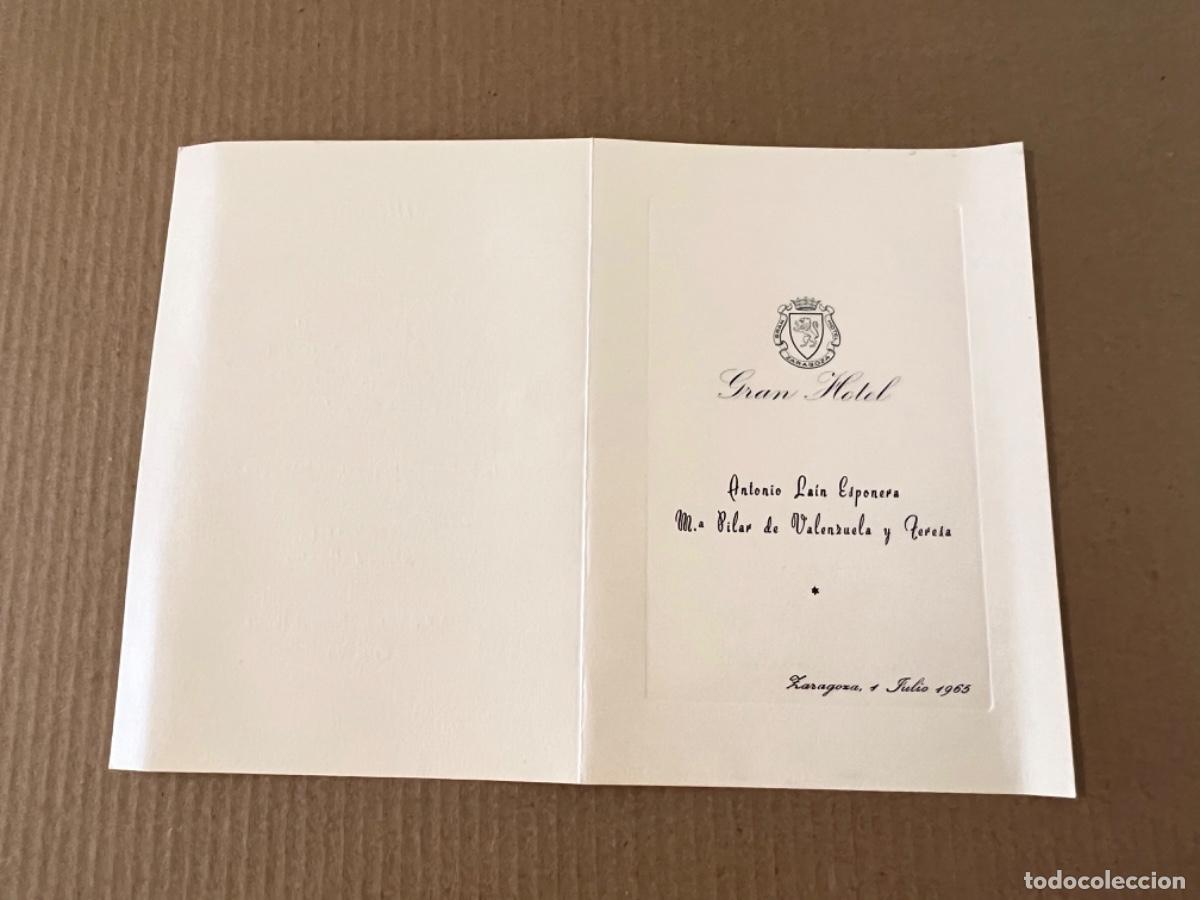 GRAN HOTEL
ZARAGOZA
Gran Hotel
Antonio Laín Esponera
M.ª Pilar de Valenzuela y Feresa
*
Zaragoza, 1 Julio 1965
todocoleccion